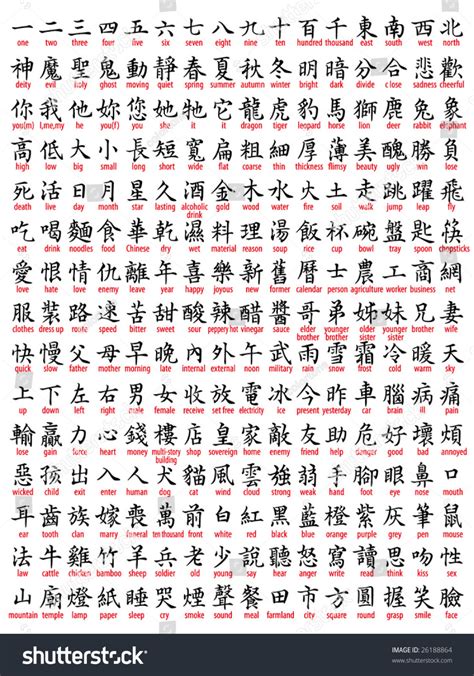 一 二 三 四 五 六 七 八 九 十 百 千 東 南 西 北
one two three four five six seven eight nine ten hundred thousand east south west north
神 魔 聖 鬼 動 靜 春 夏 秋 冬 明 暗 分 合 悲 歡
deity evil holy ghost moving quiet spring summer autumn winter bright dark divide close sadness cheerful
你 我 他 她 您 她 牠 它 龍 虎 豹 馬 獅 鹿 兔 象
you(m) I,me,my he you(f) you she it it dragon tiger leopard horse lion deer rabbit elephant
高 低 大 小 長 短 寬 扁 粗 細 厚 薄 美 醜 勝 負
high low big small long short wide flat coarse thin thick flimsy beauty ugly win lose
死 活 日 月 星 久 酒 金 木 水 火 土 走 跳 躍 飛
death live day month star lasting alcoholic drink gold wood water fire soil walk jump leap fly
吃 喝 麵 食 華 乾 濕 料 理 湯 飯 杯 碗 盤 匙 筷
eat drink noodles food Chinese dry wet material reason soup rice cup bowl tray spoon chopsticks
愛 恨 情 仇 離 年 喜 樂 新 舊 曆 士 農 工 商 網
love hate love enemy leave year happy joyous new former calendar person agriculture worker business net
服 裝 路 速 苦 甜 酸 辣 醋 醬 哥 弟 姊 妹 兄 妻
clothes dress up route speed bitter sweet sour peppery hot vinegar sauce elder brother younger brother elder sister younger sister brother wife
快 慢 父 母 早 晚 內 外 午 武 雨 雪 霜 冷 暖 天
quick slow father mother morning late internal external noon military rain snow frost cold warm sky
上 下 左 右 男 女 收 放 電 冰 今 昨 車 腦 病 痛
up down left right male female receive set free electricity ice present yesterday car brain ill pain
輸 贏 力 心 錢 樓 店 皇 家 敵 友 助 危 好 壞 煩
lose gain force heart money multi-story building shop sovereign home enemy friend help danger good bad annoyed
惡 孩 出 入 人 犬 貓 風 雲 強 弱 手 腳 眼 鼻 口
wicked child exit enter human dog cat wind cloud strong weak hand foot eye nose mouth
耳 齒 族 嫁 喪 萬 前 白 紅 黑 藍 橙 紫 灰 筆 鼠
ear tooth clan marry funeral ten thousand front white red black blue orange purple grey pen mouse
法 牛 雞 竹 羊 兵 老 少 說 聽 怒 寫 讀 思 吻 性
law cattle chicken bamboo sheep soldier old young say hear anger write read think kiss sex
山 廟 燈 紙 睡 哭 煙 聲 餐 田 市 方 圓 握 笑 臉
mountain temple lamp paper sleep cry smoke sound meal farmland city square round grasp smile face
shutterstock
IMAGE ID: 26188864
www.shutterstock.com